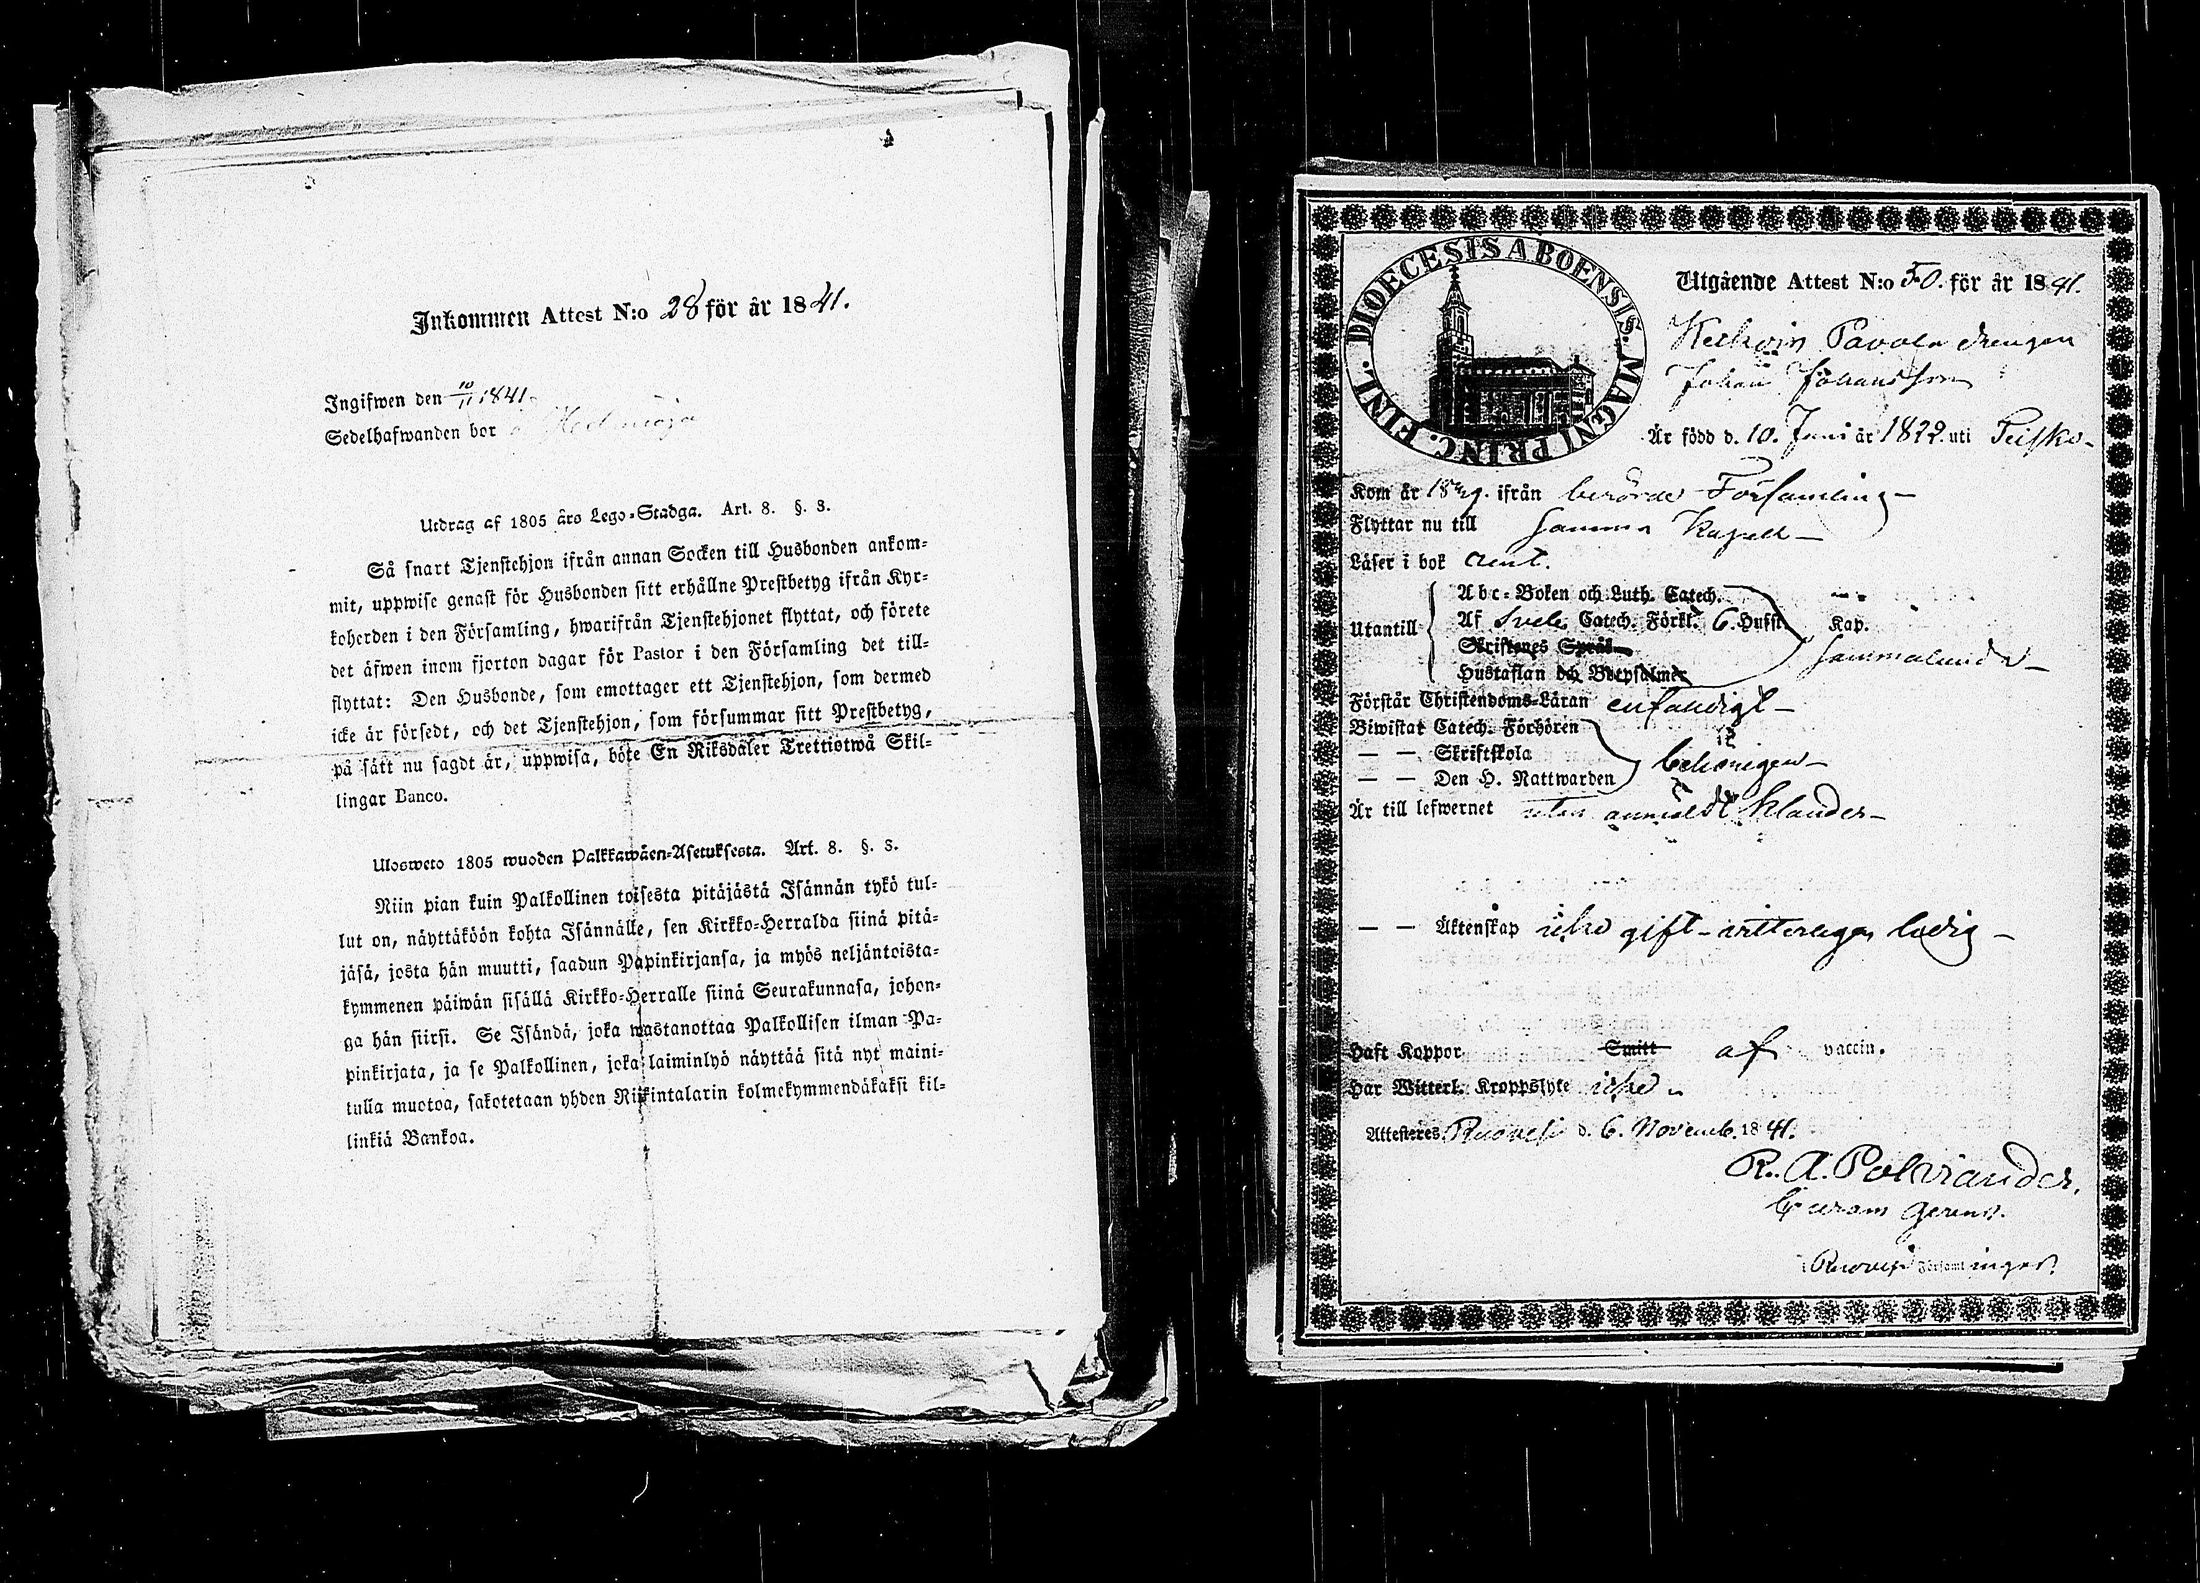 Inkommen Attest N:o 28 för år 1841.
Ingifwen den 10/11 1841.
Sedelhafwanden bor
Utdrag af 1805 års Lego-Stadga. Art. 8. §. 3.
Så snart Tjenstehjon ifrån annan Socken till Husbonden ankom-
mit, uppwise genast för Husbonden sitt erhållne Prestbetyg ifrån Kyr-
koherden i den Församling, hwarifrån Tjenstehjonet flyttat, och förete
det äfwen inom fjorton dagar för Pastor i den Församling det till-
flyttat: Den Husbonde, som emottager ett Tjenstehjon, som dermed
icke är försedt, och det Tjenstehjon, som försummar sitt Prestbetyg,
på sätt nu sagdt är, uppwisa, böte En Riksdaler Trettiotwå Skil-
lingar Banco.
Ulosweto 1805 wuoden Palkkawäen-Asetuksesta. Art. 8. §. 3.
Niin pian kuin Palkollinen toisesta pitäjästä Isännän tykö tul-
lut on, näyttäköön kohta Isännälle, sen Kirkko-Herralda siinä pitä-
jäsä, josta hän muutti, saadun Papinkirjansa, ja myös neljäntoista-
kymmenen päiwän sisällä Kirkko-Herralle siinä Seurakunnasa, johon-
ga hän siirsi. Se Isändä, joka wastanottaa Palkollisen ilman Pa-
pinkirjata, ja se Palkollinen, joka laiminlyö näyttää sitä nyt maini-
tulla muotoa, sakotetaan yhden Riikintalarin kolmekymmendäkaksi kil-
linkiä Bankoa.
DIOECESIS ABOENSIS. MAGNI PRINC. FINL.
Utgående Attest N:o 50. för år 1841.
Pavola drengen
Johan Johansson
Är född d. 10. Juni år 1822. uti
Kom år 18 ifrån berörde Församling
Flyttar nu till samma Kapell
Läser i bok rent.
Utantill
Abc-Boken och Luth. Catech.
Af Sveb. Catech. Förkl. 6. Hufst. Kap.
Skriftenes Språk
Hustaflan och Botpsalmer
sammalunda
Förstår Christendoms-Läran enfaldigt
Biwistat Catech. Förhören
— — Skriftskola
— — Den H. Nattwarden
behörigen
Är till lefwernet utan anmäldt klander
— — Äktenskap icke gift - witterligen ledig
Haft Koppor Smitt af vaccin.
Har Witterl. Kroppslyte icke
Attesteres Ruovesi d. 6. Novemb. 1841.
R. A. Polviander.
Curam gerens.
i Ruovesi Församlingar.